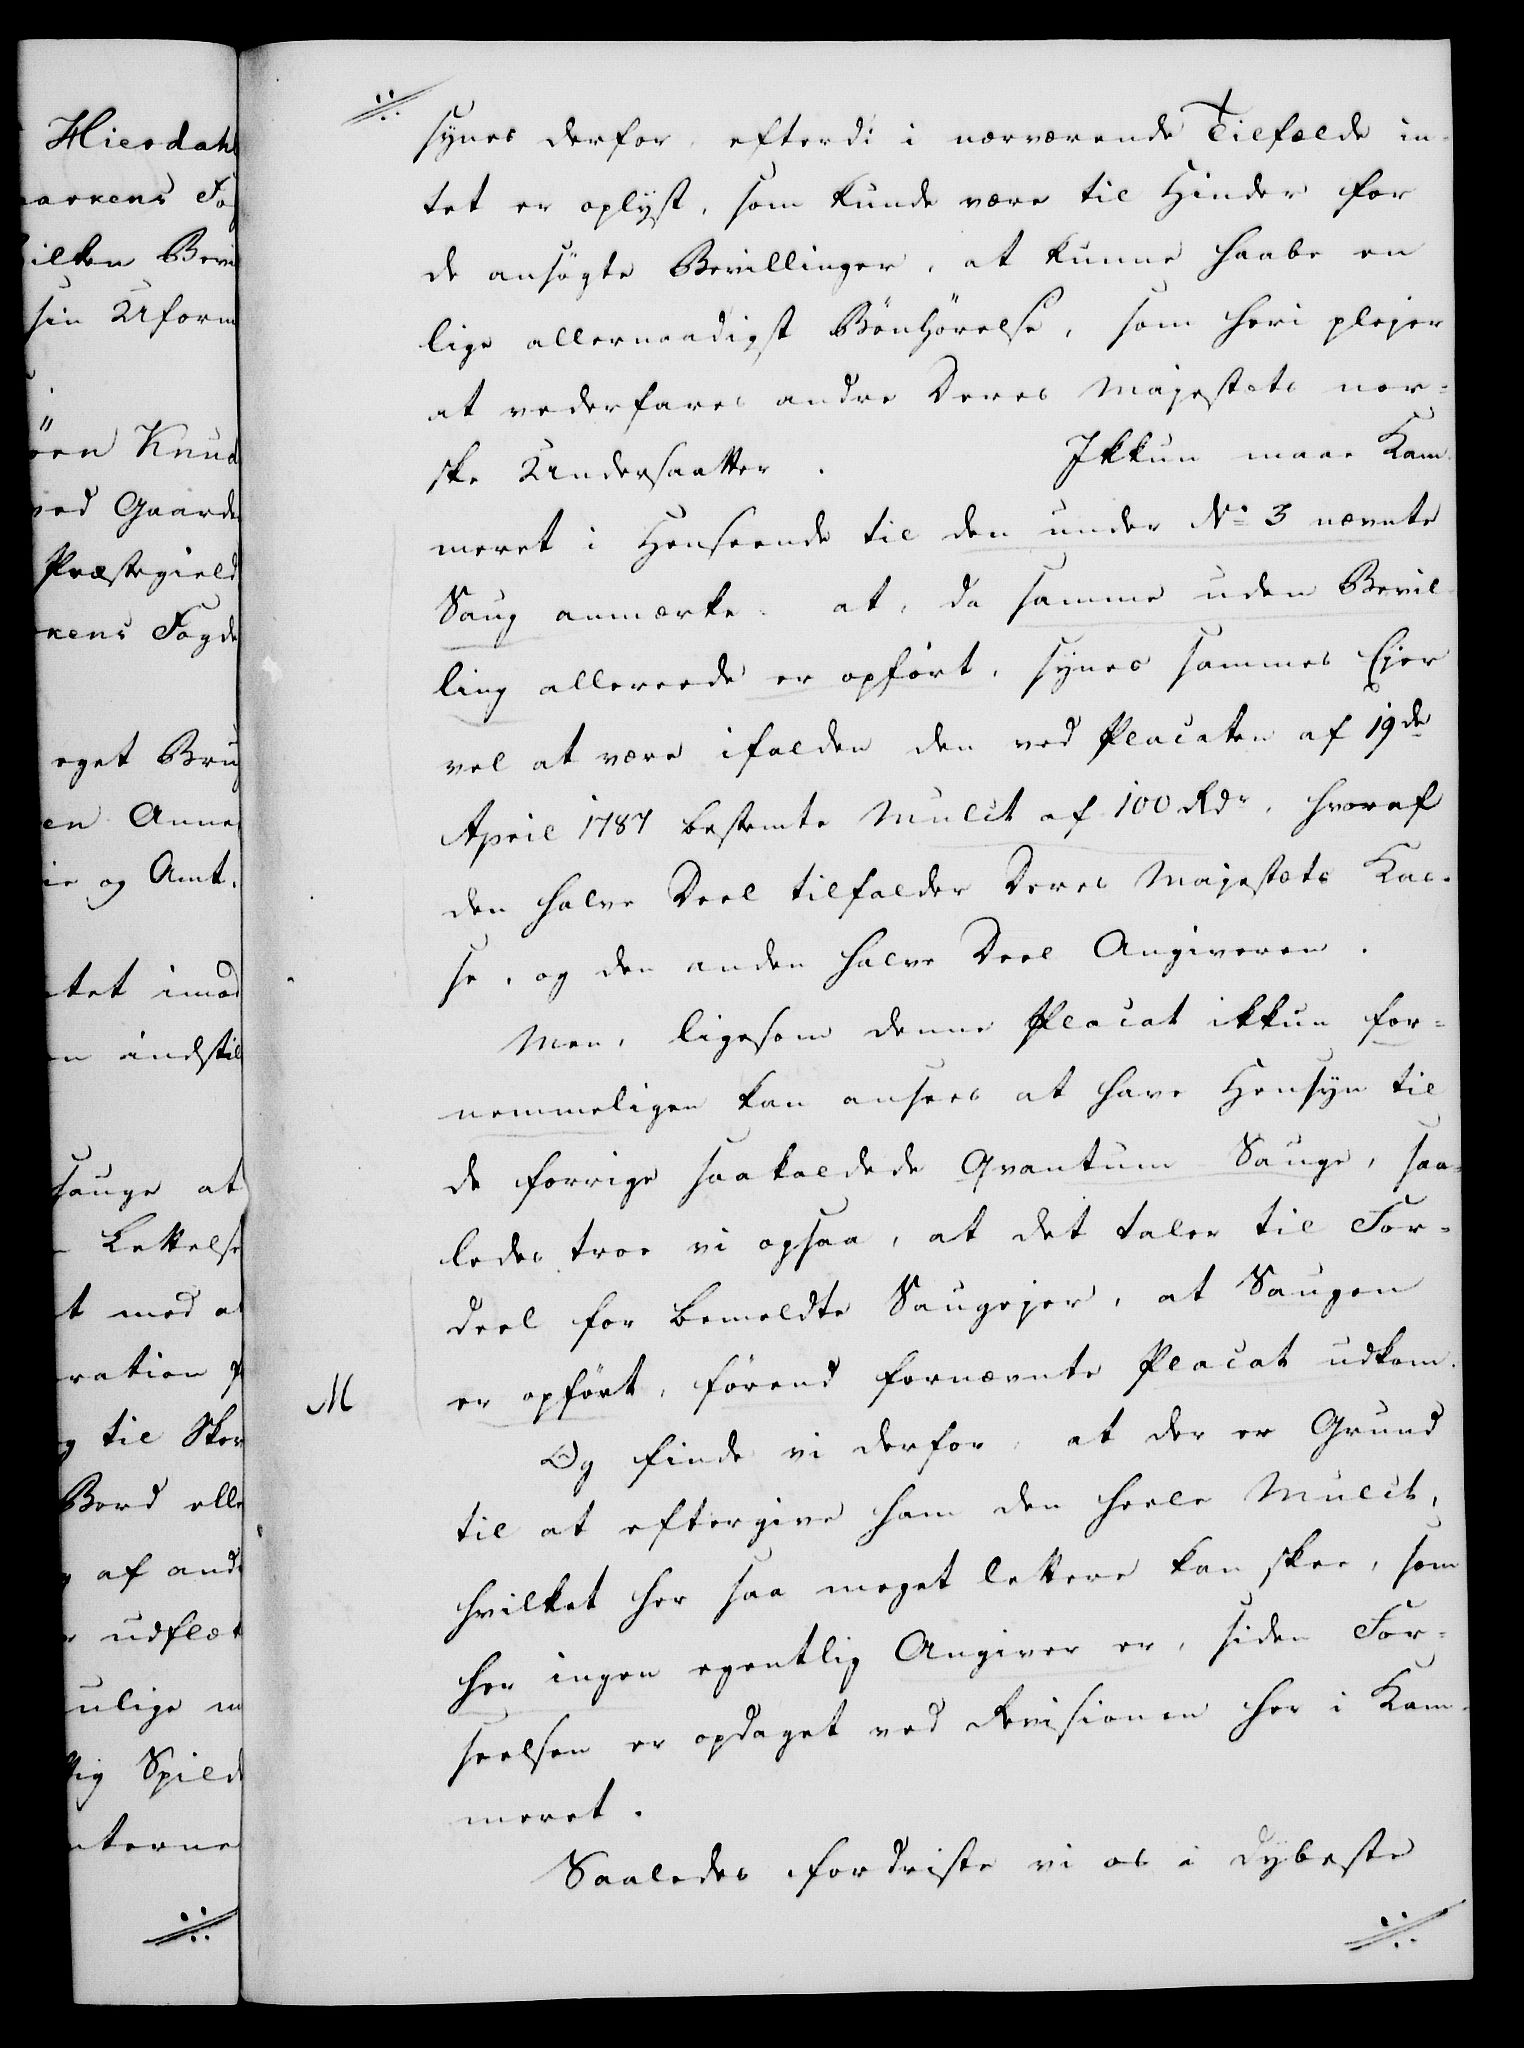 Hiesdahl
markens Fog
hvilken Bevil
sin Uform
ören Knud
ved Gaarde
Præstegield
kens Fogde
eget Brug
en Anne
ie og Amt.
tet imod
n indstil
sauge at
Lettelse
t med at
ration p
g til Skov
Bord elle
af and
udflæt
ulige m
tig Spild
nterne
synes derfor, efterdi i nærværende Tilfælde in-
tet er oplyst, som kunde være til Hinder for
de ansögte Bevillinger, at kunne haabe en
lige allernaadigst Bönhörelse, som heri plejer
at vederfares andre Deres Majestets nor-
ske Undersaatter. Ikkun maae Kam-
meret i Henseende til den under No 3 nævnte
Saug anmærke: at, da samme uden Bevil-
ling allereede er opfört, synes sammes Ejer
vel at være ifalden den ved Placaten af 19de
April 1787 bestemte Mulct af 100 Rdr, hvoraf
den halve Deel tilfalder Deres Majestets Kas-
se, og den anden halve Deel Angiveren.
Men, ligesom denne Placat ikkun for-
nemmeligen kan ansees at have Hensyn til
de forrige saakaldede Qvantum Sauge, saa-
ledes troe vi ogsaa, at det taler til For-
deel for bemeldte Saugejer, at Saugen
er opfört, förend fornævnte Placat udkom.
M
Og finde vi derfor, at der er Grund
til at eftergive ham den heele Mulct,
hvilket her saa meget lettere kan skee, som
her ingen egentlig Angiver er, siden For-
seelsen er opdaget ved Revisionen her i Kam-
meret.
Saaledes fordriste vi os i dybeste